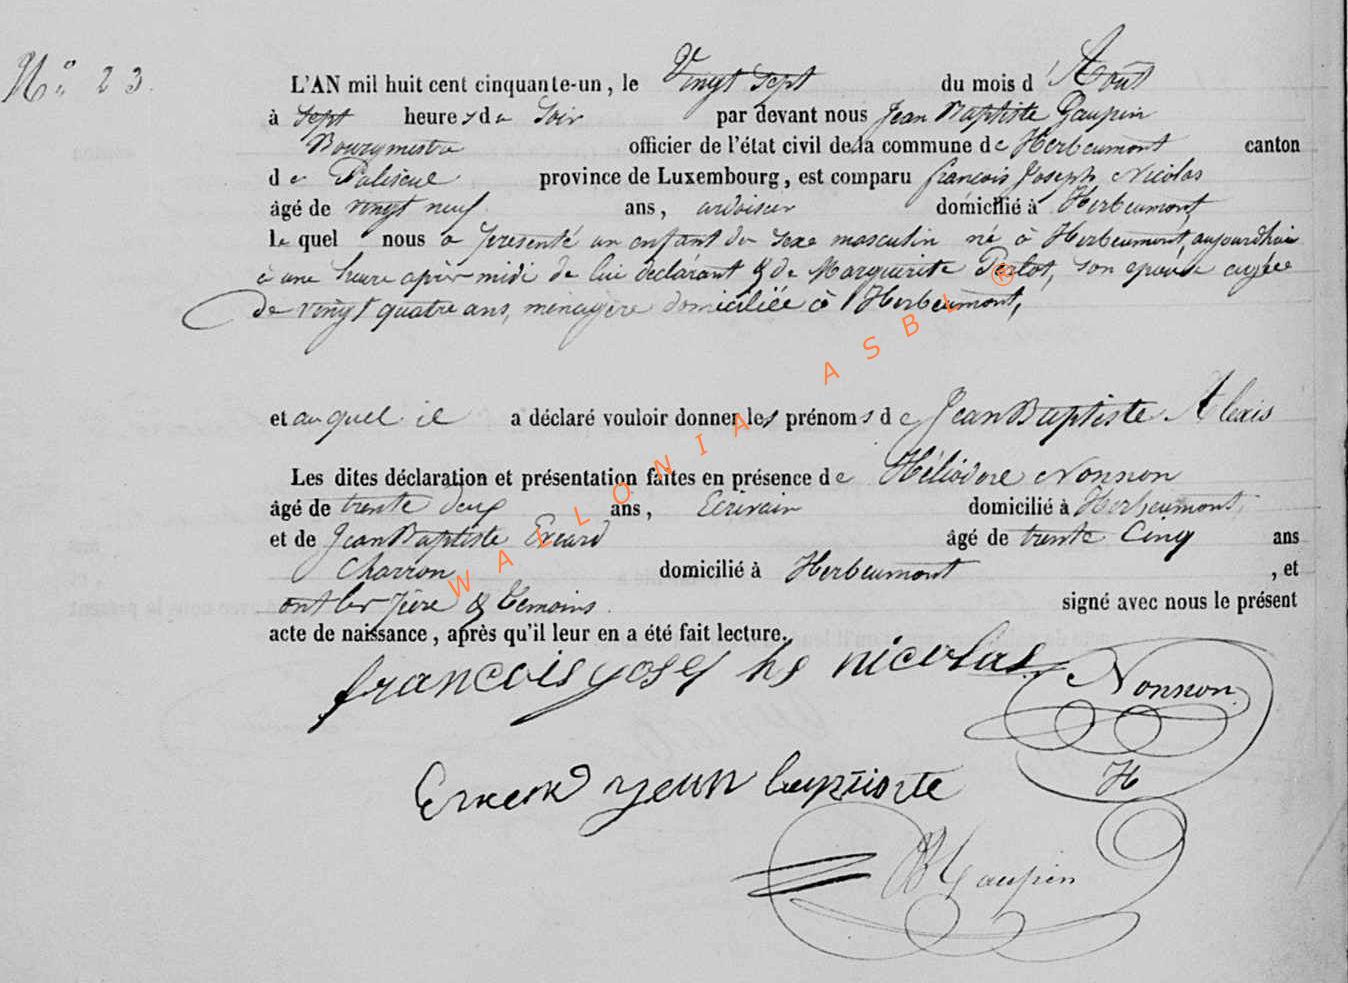 N° 23.
L'AN mil huit cent cinquante-un, le Vingt sept du mois d'Août
à sept heures du soir par devant nous Jean Baptiste Gaupin
Bourgmestre officier de l'état civil de la commune de Herbeumont canton
de Paliseul province de Luxembourg, est comparu françois Joseph Nicolas
âgé de vingt neuf ans, ardoisier domicilié à Herbeumont
le quel nous a présenté un enfant du sexe masculin né à Herbeumont, aujourdhui
à une heure après midi de lui déclarant & de Marguerite Perlot, son épouse agée
de vingt quatre ans, ménagère domiciliée à Herbeumont,
et auquel il a déclaré vouloir donner les prénoms de Jean Baptiste Alexis
Les dites déclaration et présentation faites en présence de Héliodore Nonnon
âgé de trente deux ans, Ecrivain domicilié à Herbeumont,
et de Jean Baptiste âgé de trente Cinq ans
Charron domicilié à Herbeumont, et
ont les père & temoins. signé avec nous le présent
acte de naissance, après qu'il leur en a été fait lecture.
francois yosephs nicolas
Nonnon
H
yean baptiste
Gaupin
WALLONIA ASBL ®